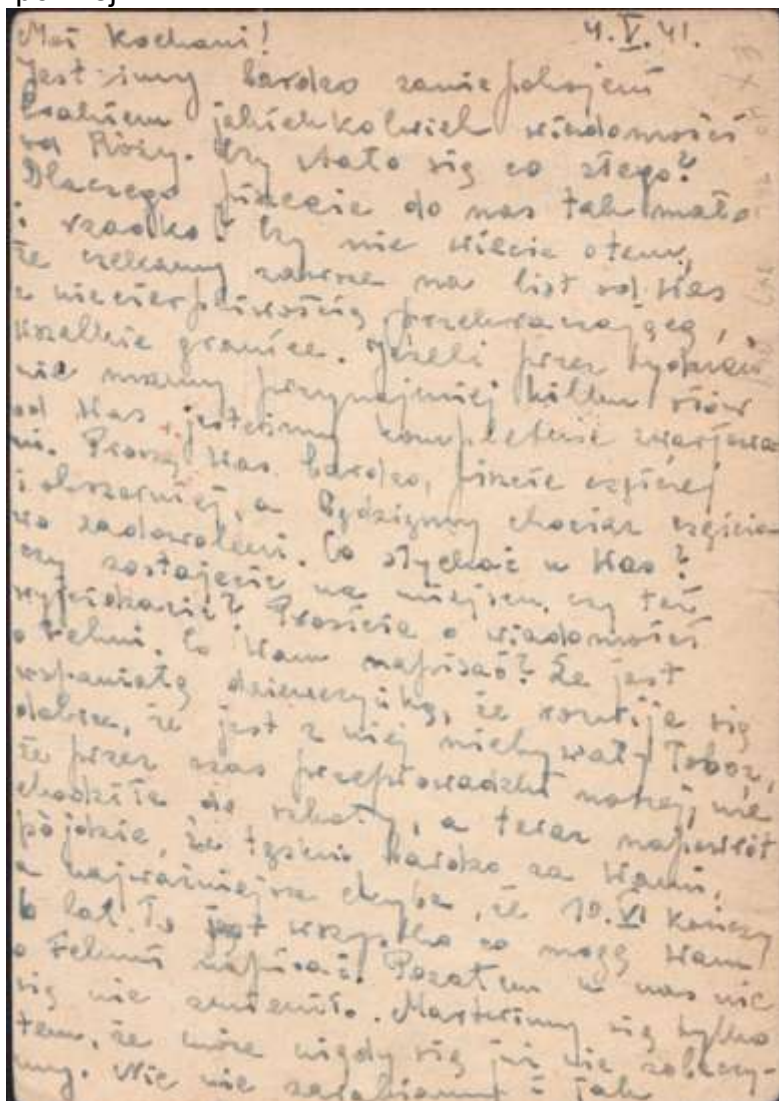 4.V.41.
Moi Kochani!
Jesteśmy bardzo zaniepokojeni
brakiem jakichkolwiek wiadomości
od Róży. Czy stało się co złego?
Dlaczego piszecie do nas tak mało
i rzadko? Czy nie wiecie o tem,
że czekamy zawsze na list od Was
z niecierpliwością przekraczającą
wszelkie granice. Jeżeli przez tydzień
nie mamy przynajmniej kilku słów
od Was, jesteśmy kompletnie zwarjowa
ni. Proszę Was bardzo, piszcie częściej
i obszerniej, a będziemy chociaż częścio
wo zadowoleni. Co słychać u Was?
czy zostajecie na miejscu, czy też
wyjeżdżacie? Prosicie o wiadomości
o Felusi. Co Wam napisać? Że jest
wspaniałą dziewczynką, że rozwija się
dobrze, że jest z niej niebywały łobuz,
że przez czas przeprowadzki naszej, nie
chodziła do szkoły, a teraz napowrót
pójdzie, że tęskni bardzo za Wami,
a najważniejsze chyba, że 10.VI kończy
6 lat. To jest wszystko co mogę Wam
o Felusi napisać. Pozatem u nas nic
się nie zmieniło. Martwimy się tylko
tem, że może nigdy się już nie zobaczy-
my. Nic nie zarabiamy i tak